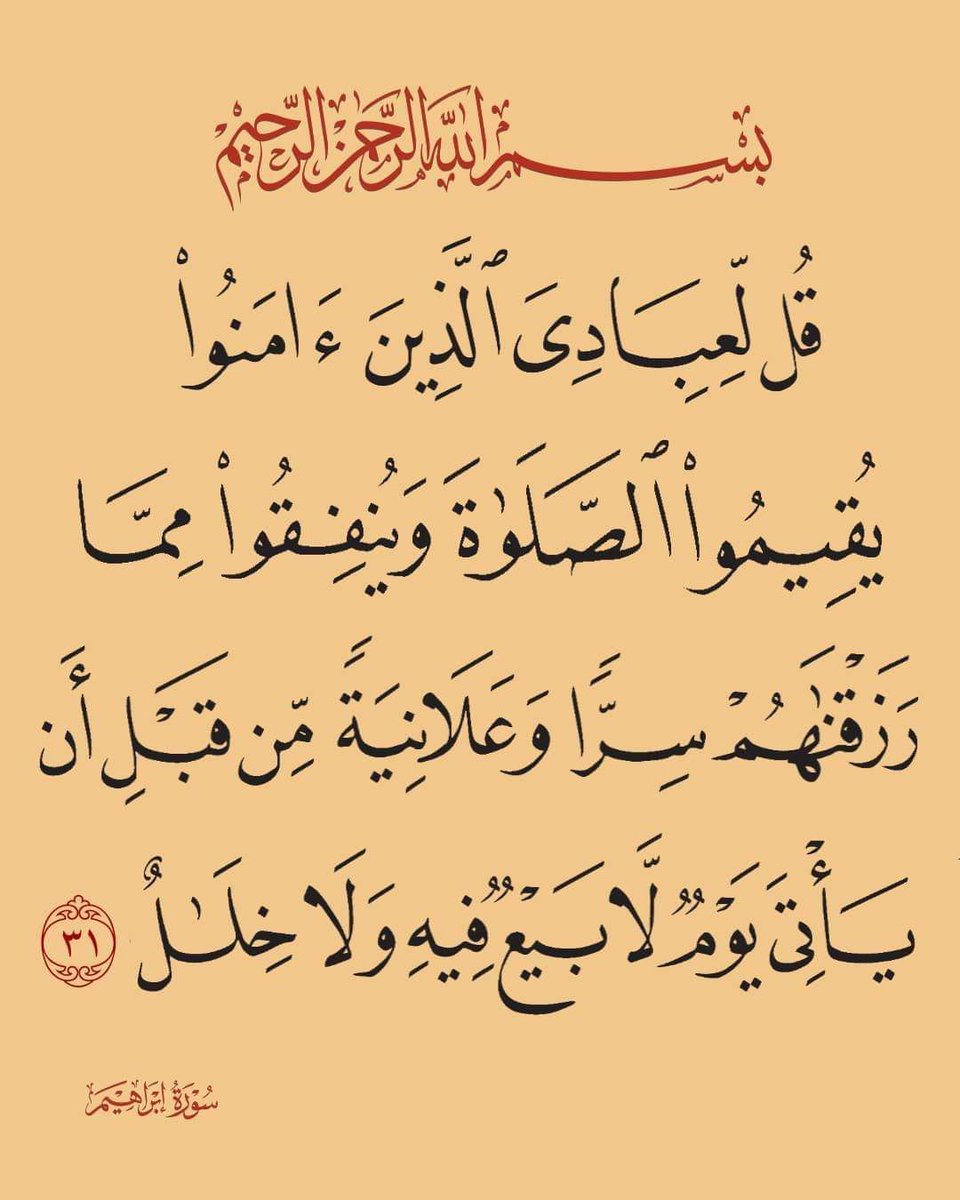 بِسْمِ اللَّهِ الرَّحْمَٰنِ الرَّحِيمِ
قُل لِّعِبَادِىَ ٱلَّذِينَ ءَامَنُوا۟
يُقِيمُوا۟ ٱلصَّلَوٰةَ وَيُنفِقُوا۟ مِمَّا
رَزَقْنَٰهُمْ سِرًّا وَعَلَانِيَةً مِّن قَبْلِ أَن
يَأْتِىَ يَوْمٌ لَّا بَيْعٌ فِيهِ وَلَا خِلَٰلٌ ٣١
سُورَةُ إِبْرَاهِيمَ